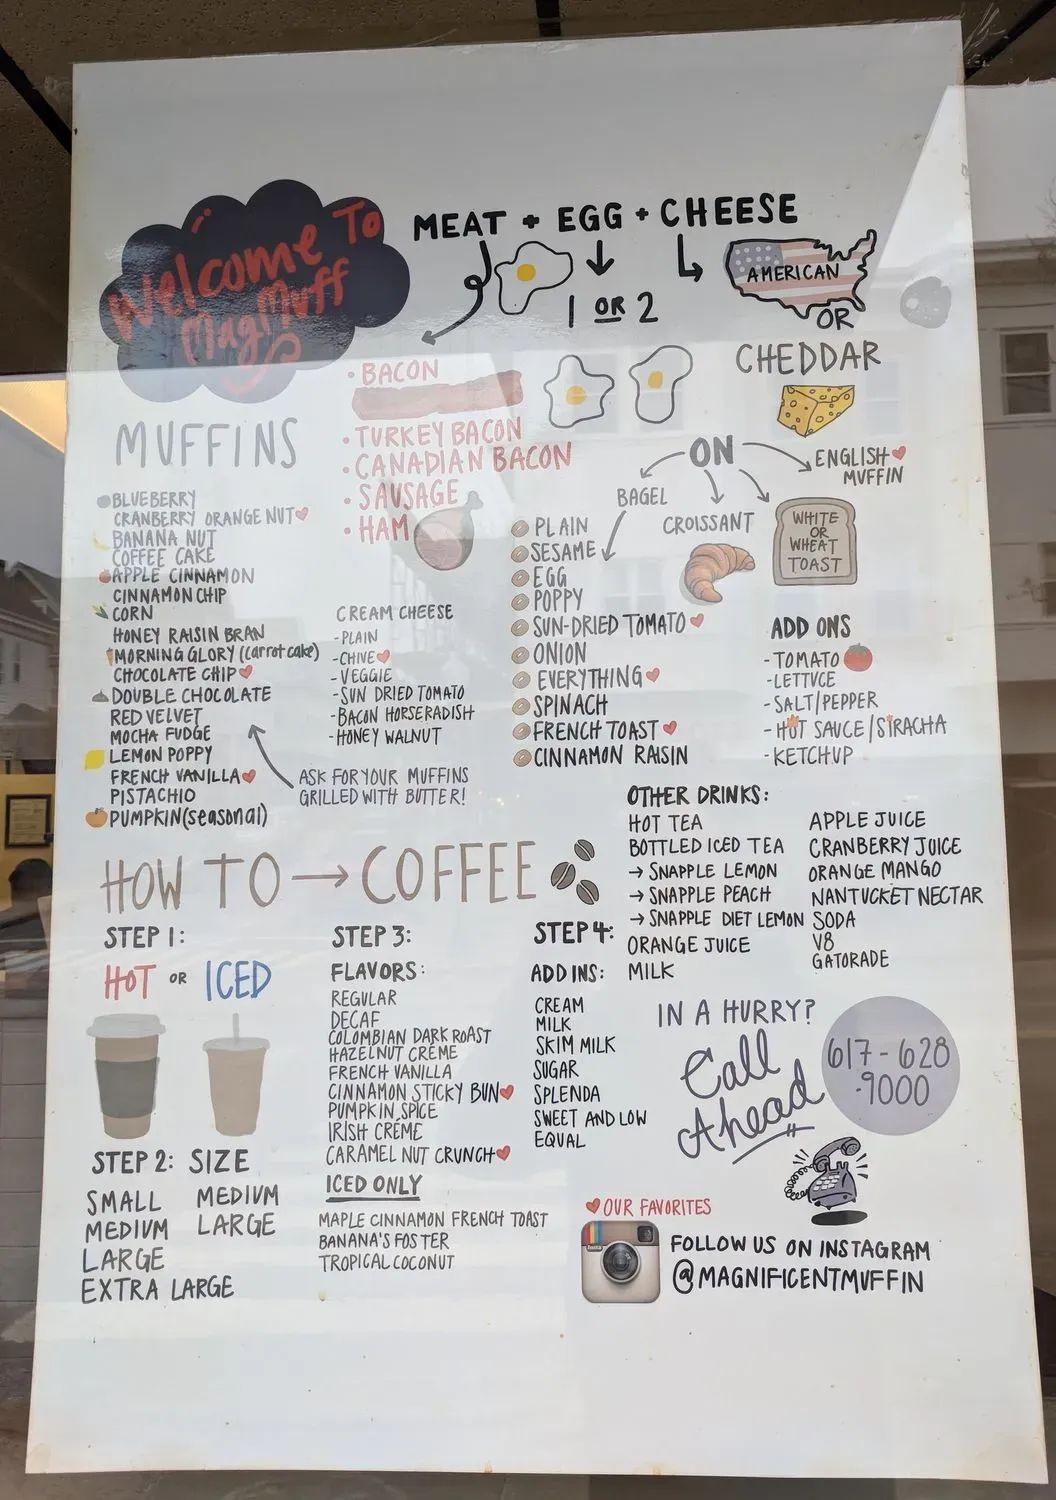 Welcome To
MagMuff
MEAT + EGG + CHEESE
1 OR 2
AMERICAN
OR
CHEDDAR
• BACON
• TURKEY BACON
• CANADIAN BACON
• SAUSAGE
• HAM
ON
BAGEL
CROISSANT
WHITE
OR
WHEAT
TOAST
ENGLISH
MUFFIN
PLAIN
SESAME
EGG
POPPY
SUN-DRIED TOMATO
ONION
EVERYTHING
SPINACH
FRENCH TOAST
CINNAMON RAISIN
ADD ONS
- TOMATO
- LETTUCE
- SALT/PEPPER
- HOT SAUCE/SIRACHA
- KETCHUP
MUFFINS
BLUEBERRY
CRANBERRY ORANGE NUT
BANANA NUT
COFFEE CAKE
APPLE CINNAMON
CINNAMON CHIP
CORN
HONEY RAISIN BRAN
MORNING GLORY (carrot cake)
CHOCOLATE CHIP
DOUBLE CHOCOLATE
RED VELVET
MOCHA FUDGE
LEMON POPPY
FRENCH VANILLA
PISTACHIO
PUMPKIN (seasonal)
CREAM CHEESE
- PLAIN
- CHIVE
- VEGGIE
- SUN DRIED TOMATO
- BACON HORSERADISH
- HONEY WALNUT
ASK FOR YOUR MUFFINS
GRILLED WITH BUTTER!
HOW TO → COFFEE
STEP 1:
HOT OR ICED
STEP 2: SIZE
SMALL
MEDIUM
LARGE
EXTRA LARGE
MEDIUM
LARGE
STEP 3:
FLAVORS:
REGULAR
DECAF
COLOMBIAN DARK ROAST
HAZELNUT CRÉME
FRENCH VANILLA
CINNAMON STICKY BUN
PUMPKIN SPICE
IRISH CRÉME
CARAMEL NUT CRUNCH
ICED ONLY
MAPLE CINNAMON FRENCH TOAST
BANANA'S FOSTER
TROPICAL COCONUT
STEP 4:
ADD INS:
CREAM
MILK
SKIM MILK
SUGAR
SPLENDA
SWEET AND LOW
EQUAL
OTHER DRINKS:
HOT TEA
BOTTLED ICED TEA
→ SNAPPLE LEMON
→ SNAPPLE PEACH
→ SNAPPLE DIET LEMON
ORANGE JUICE
MILK
APPLE JUICE
CRANBERRY JUICE
ORANGE MANGO
NANTUCKET NECTAR
SODA
V8
GATORADE
IN A HURRY?
Call
Ahead
617-628
-9000
OUR FAVORITES
Insta
FOLLOW US ON INSTAGRAM
@MAGNIFICENTMUFFIN